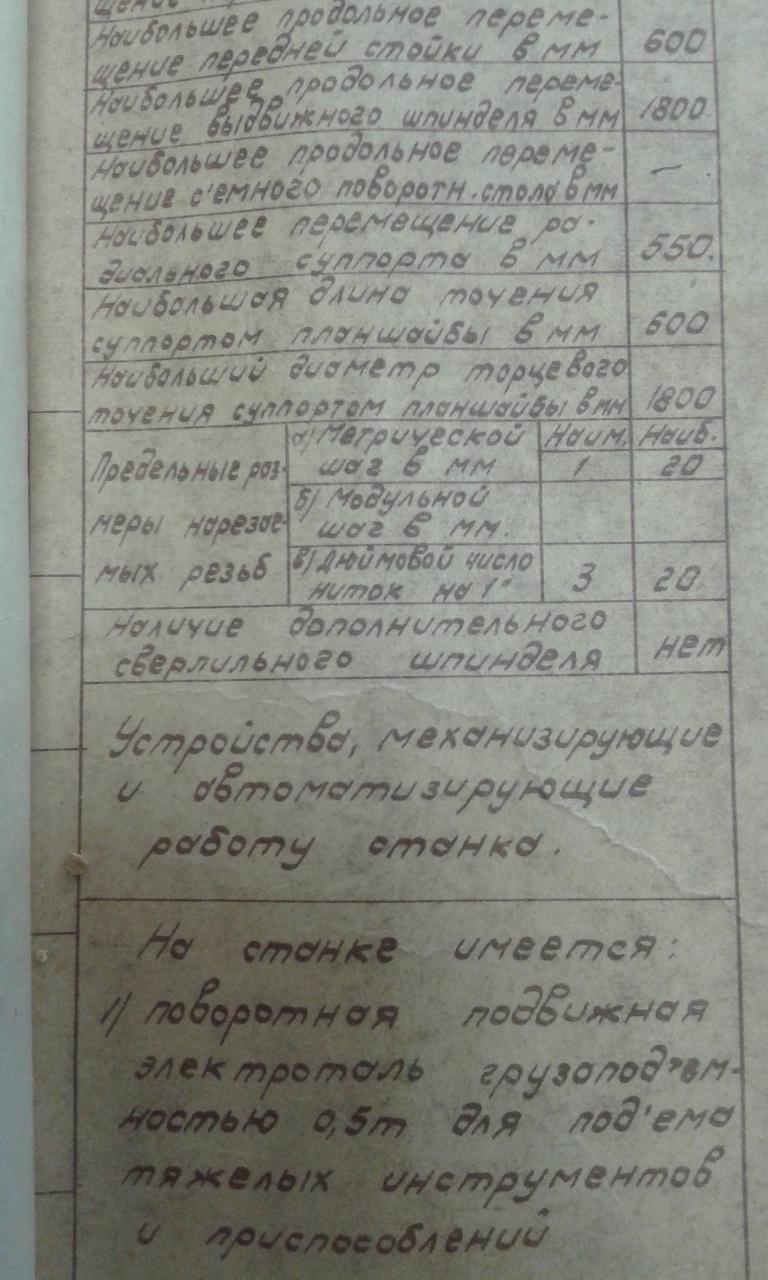 Наибольшее продольное переме-
щение передней стойки в мм 600
Наибольшее продольное переме-
щение выдвижного шпинделя в мм 1800
Наибольшее продольное переме-
щение с'емного поворотн. стола в мм —
Наибольшее перемещение ра-
диального суппорта в мм 550.
Наибольшая длина точения
суппортом планшайбы в мм 600
Наибольший диаметр торцевого
точения суппортом планшайбы в мм 1800
Предельные раз-
меры нарезае-
мых резьб
а) Метрической Наим. Наиб.
шаг в мм 1 20
б) Модульной
шаг в мм.
в) Дюймовой число
ниток на 1" 3 20
Наличие дополнительного
сверлильного шпинделя нет
Устройства, механизирующие
и автоматизирующие
работу станка.
На станке имеется:
1) поворотная подвижная
электроталь грузопод'ем-
ностью 0,5т для под'ема
тяжелых инструментов
и приспособлений